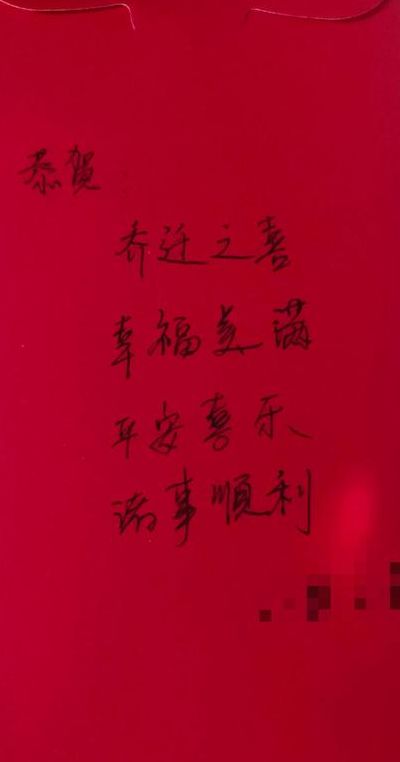 恭贺
乔迁之喜
幸福美满
平安喜乐
诸事順利